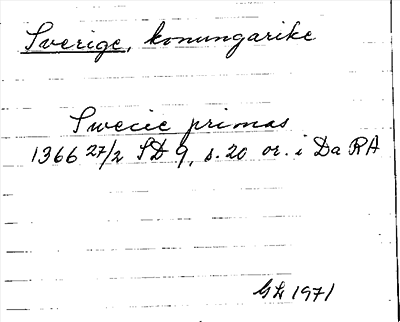 Sverige, konungarike
Swecie primas
1366 27/2 SD 9, s. 20 or. i Da RA
GL 1971